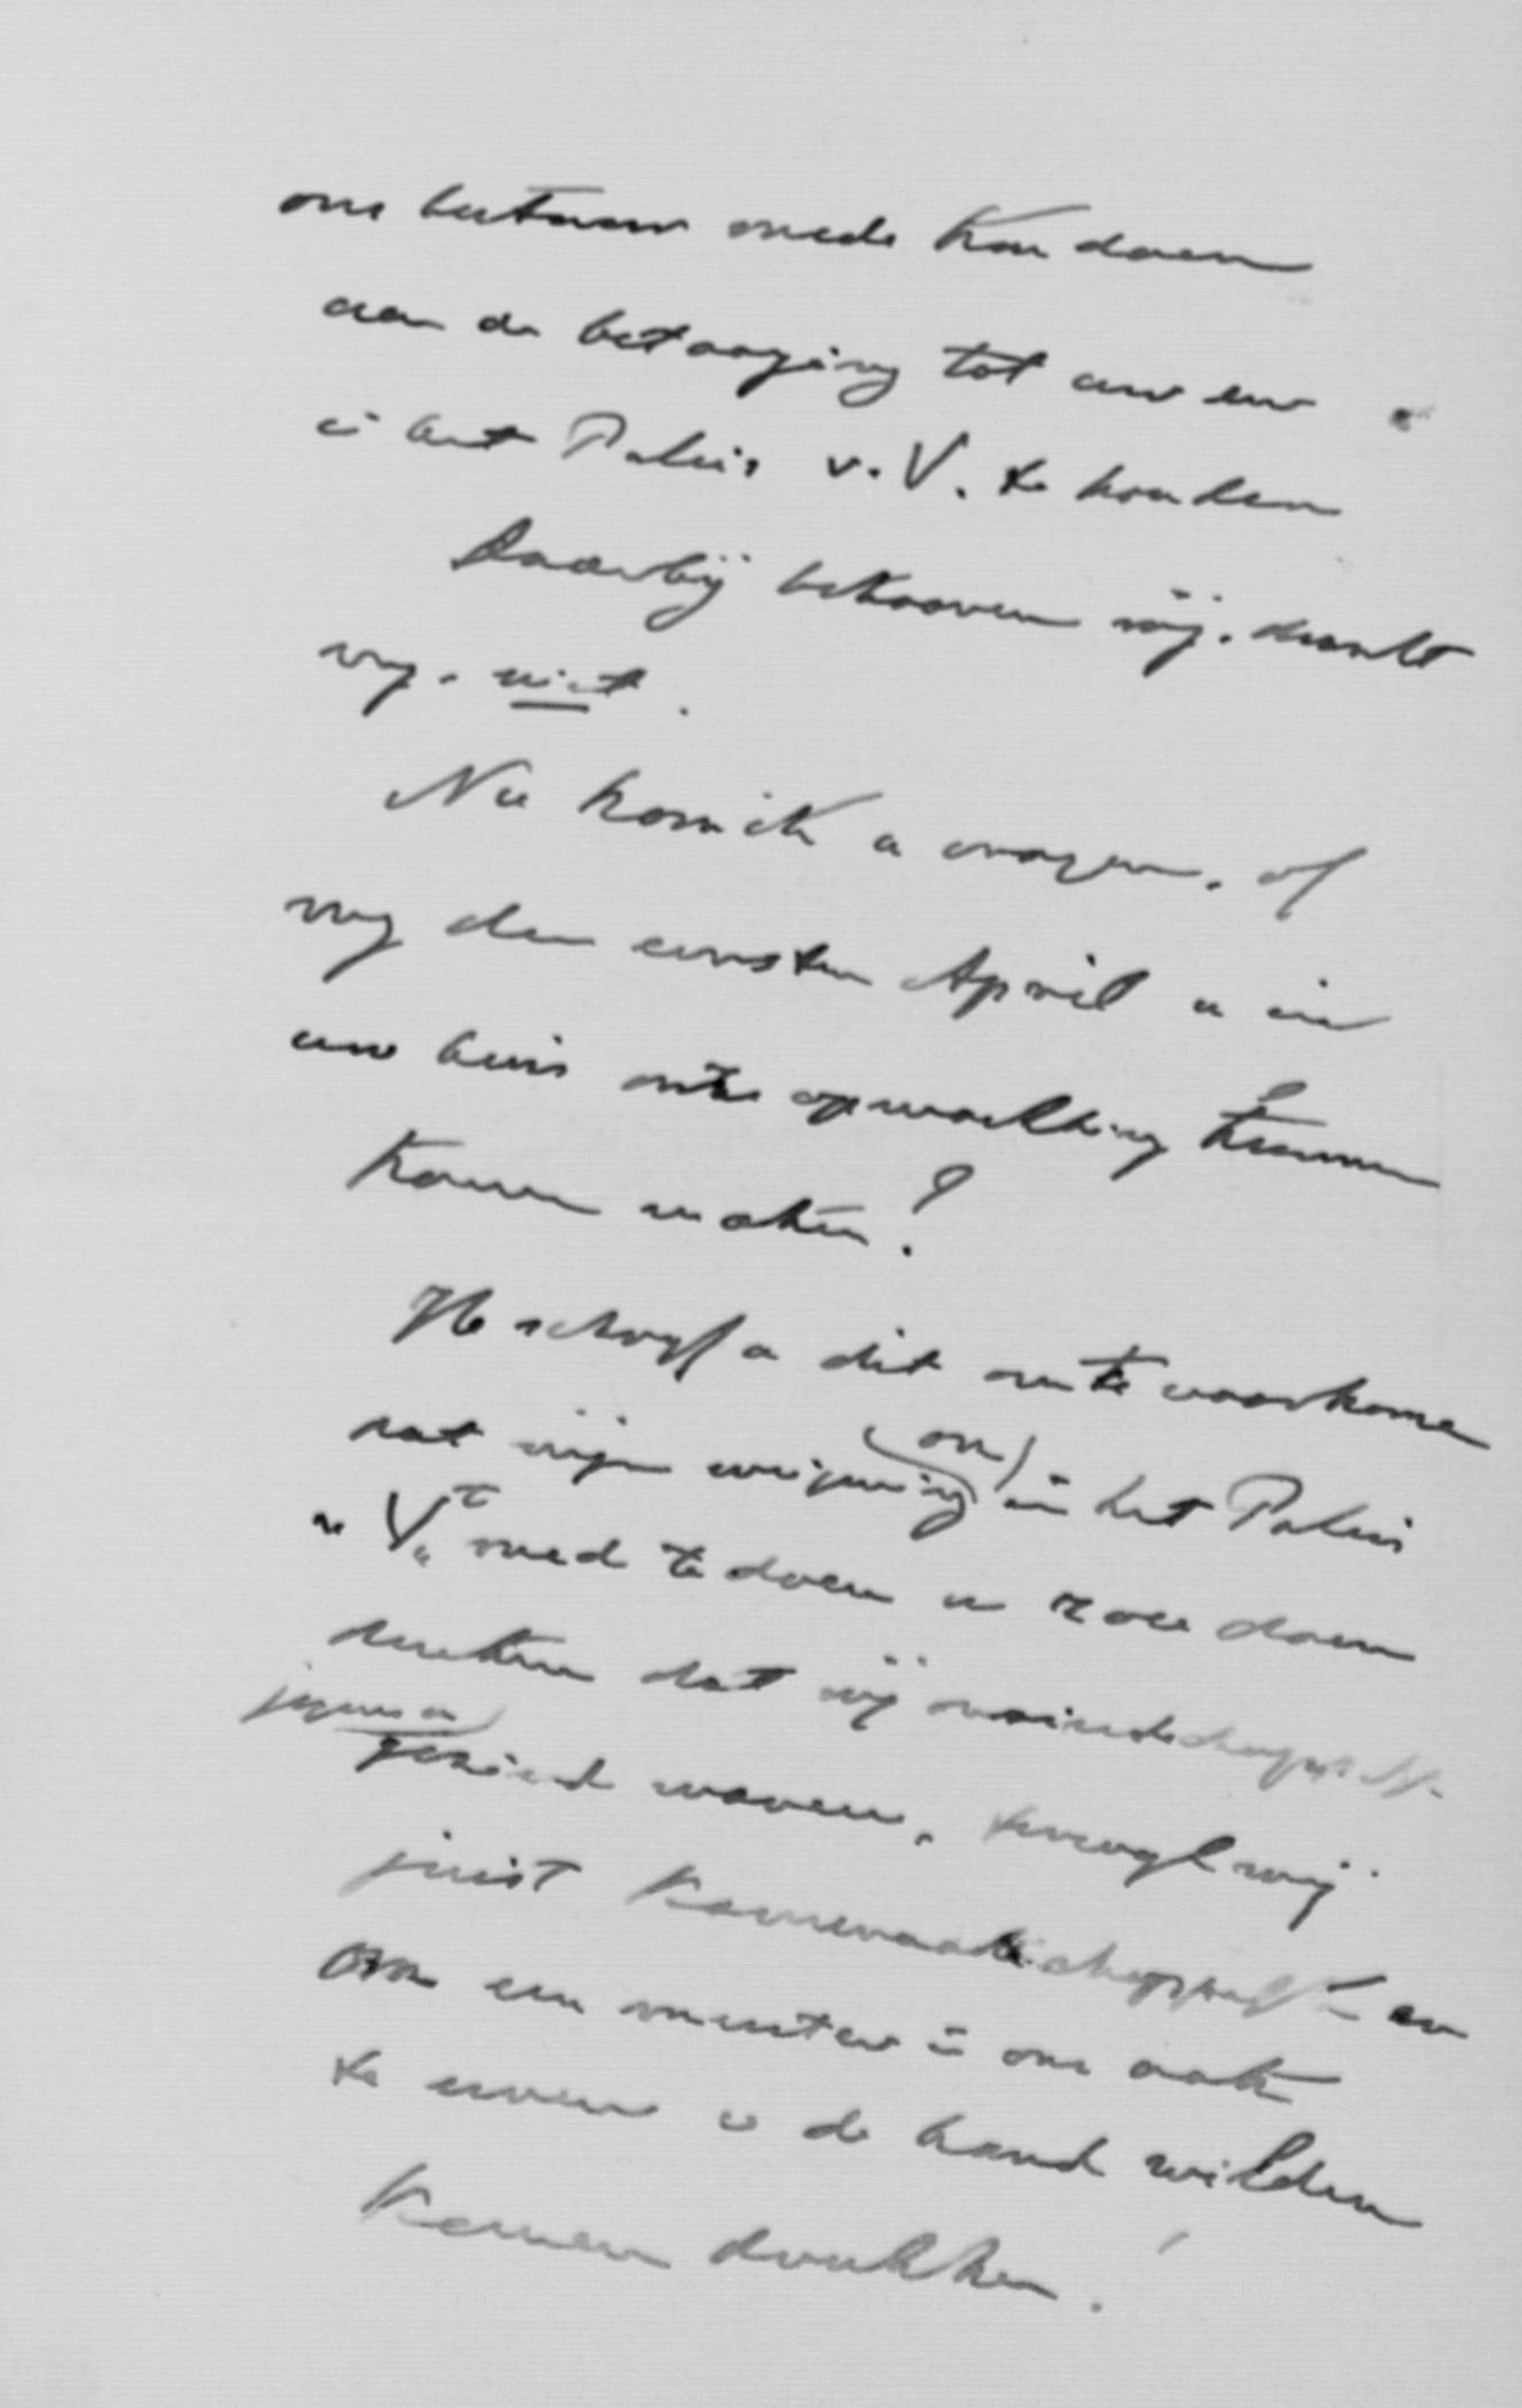 ons bestuur mede kon doen
aan de betooging tot uw eer
in het Paleis v. V. te houden
Daarbij behooren wij, dunkt
mij, niet.
Nu kom ik u vragen, of
wij den eersten April u in
uw huis onze opwachting kunnen
komen maken?
Ik schrijf u dit om te voorkomen
dat mijn weigering (om) in het Paleis
v V. mede te doen u zou doen
denken dat wij onvriendschappelijk
jegens u
gezind waren, terwijl wij
juist kameraadschappelijk en
om een meester in ons vak
te eeren u de hand wilden
komen drukken.